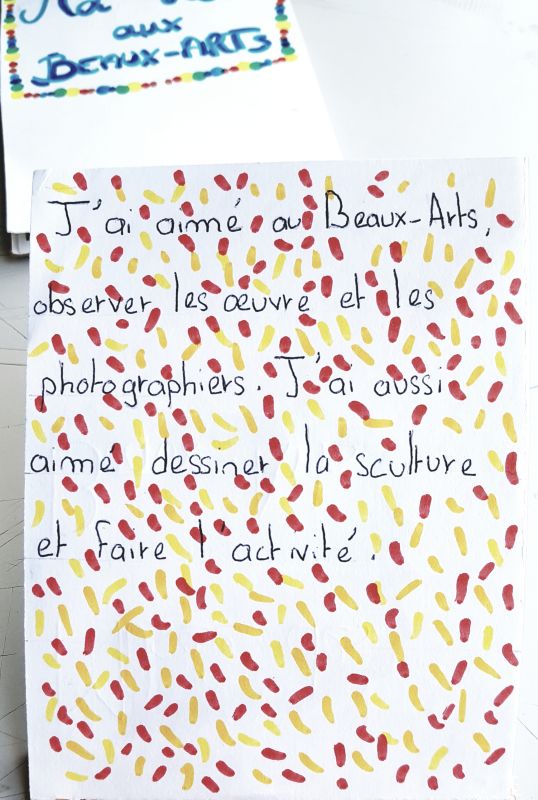 aux
BEAUX-ARTS
J'ai aimé au Beaux-Arts,
observer les œuvre et les
photographiers. J'ai aussi
aimé dessiner la sculture
et faire l'activité.